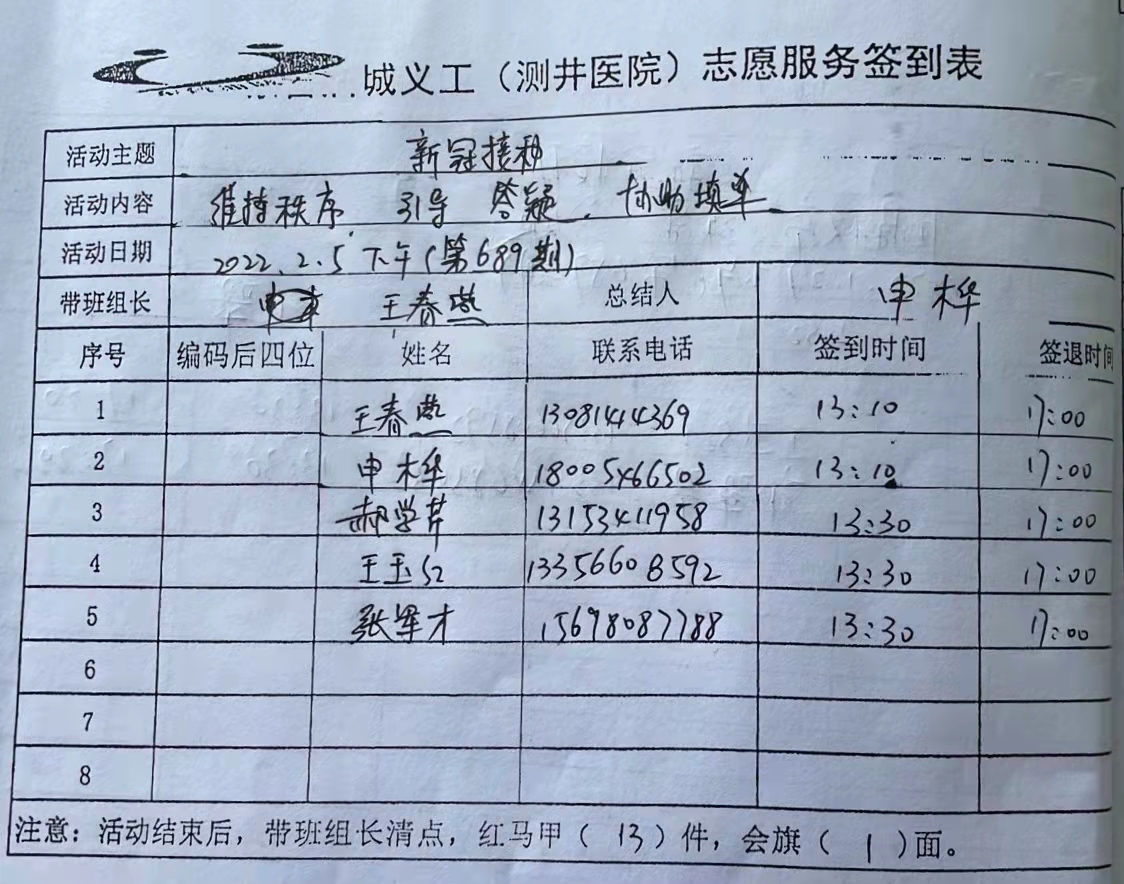 城义工（测井医院）志愿服务签到表
活动主题 新冠接种
活动内容 维持秩序 引导 答疑、协助填单
活动日期 2022.2.5 下午（第689期）
带班组长 王春燕 总结人 申桦
序号 编码后四位 姓名 联系电话 签到时间 签退时间
1 王春燕 13081414369 13:10 17:00
2 申桦 18005466502 13:10 17:00
3 郝学芹 13153411958 13:30 17:00
4 王玉红 13356608592 13:30 17:00
5 张军才 15698087788 13:30 17:00
6
7
8
注意：活动结束后，带班组长清点，红马甲（ 13 ）件，会旗（ 1 ）面。